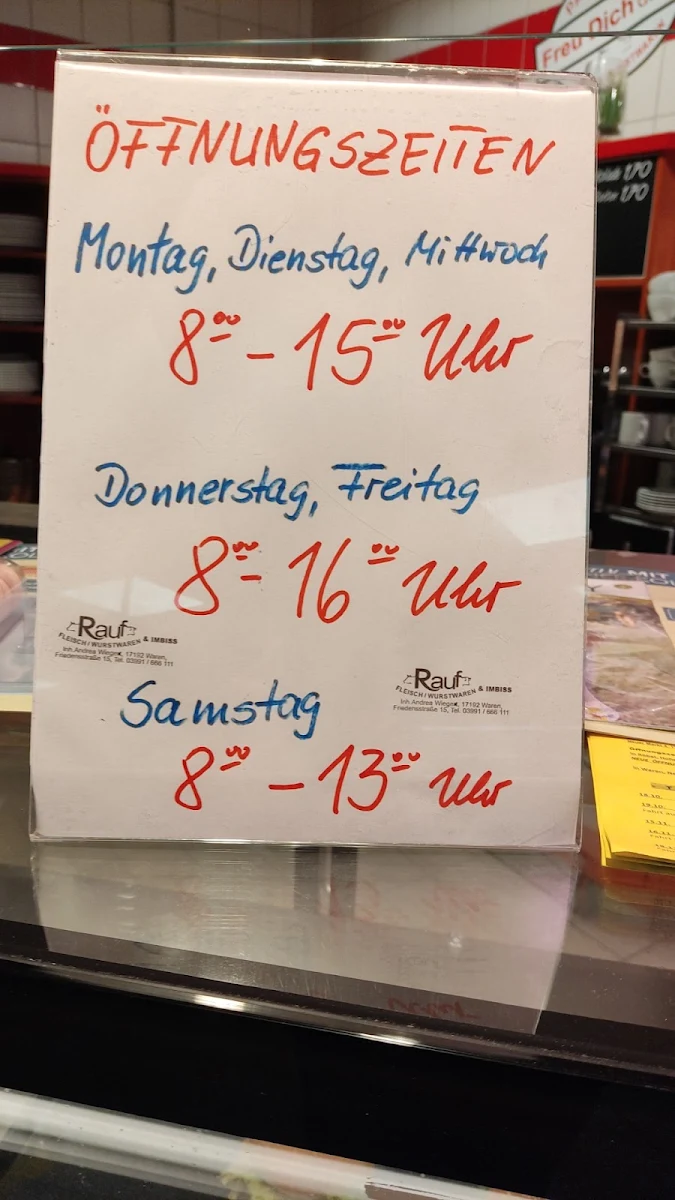 ÖFFNUNGSZEITEN
Montag, Dienstag, Mittwoch
8⁰⁰ – 15⁰⁰ Uhr
Donnerstag, Freitag
8⁰⁰ – 16⁰⁰ Uhr
Rauf
FLEISCH / WURSTWAREN & IMBISS
Inh. Andrea Wiegne, 17192 Waren,
Friedensstraße 15, Tel. 03991 / 666 111
Rauf
FLEISCH / WURSTWAREN & IMBISS
Inh. Andrea Wiegne, 17192 Waren,
Friedensstraße 15, Tel. 03991 / 666 111
Samstag
8⁰⁰ – 13⁰⁰ Uhr
Freu Dich
WURSTWAREN
1,70
1,70